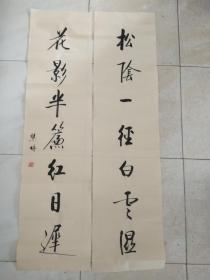 松陰一徑白雲濕
花影半簾紅日遲